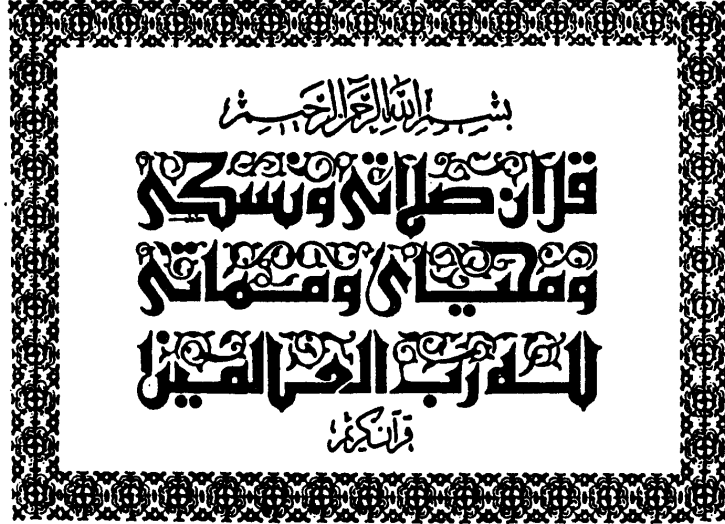 بسم الله الرحمن الرحيم
قل ان صلاتي ونسكي
ومحياي ومماتي
لله رب العالمين
قرآن كريم